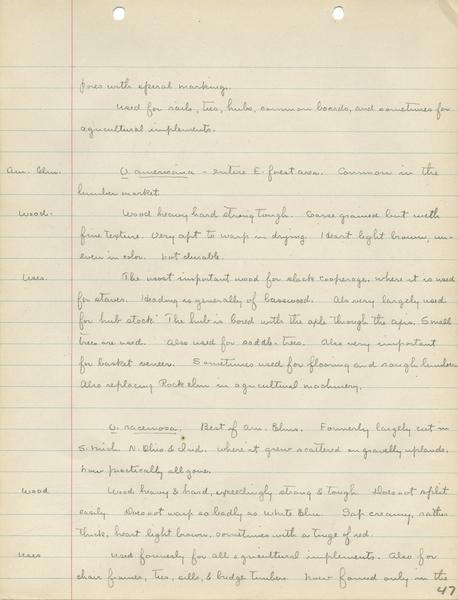 pores with speral marking.
Used for rails, ties, hubs, common boards, and sometimes for
agricultural implements.
Am. Elm. U. americana - entire E. forest area. Common in the
lumber market
Wood. Wood heavy hard strong tough. Coarse grained but with
fine texture. Very apt to warp in drying. Heart light brown, un-
even in color. Not durable.
Uses. The most important wood for slack cooperage, where it is used
for staves. Heading is generally of basswood. Als very largely used
for "hub stock" The hub is bored with the axle through the Small
trees are used. Also used for saddle-trees. Also very important
for basket veneer. Sometimes used for flooring and rough lumber
Also replacing Rock elm in agricultural machinery.
U. racemosa. Best of Am. Elms. Formerly largely cut in
S. Mich. N. Ohio & Ind. where it grew scattered on gravelly uplands.
Now practically all gone.
Wood Wood heavy & hard, exceedingly strong & tough Does not split
easily. Does not warp so badly as White Elm. Sap creamy, rather
thick, heart light brown, sometimes with a tinge of red.
Uses Used formerly for all agricultural implements. Also for
chair frames, ties, sills, & bridge timbers. Now found only in the
47